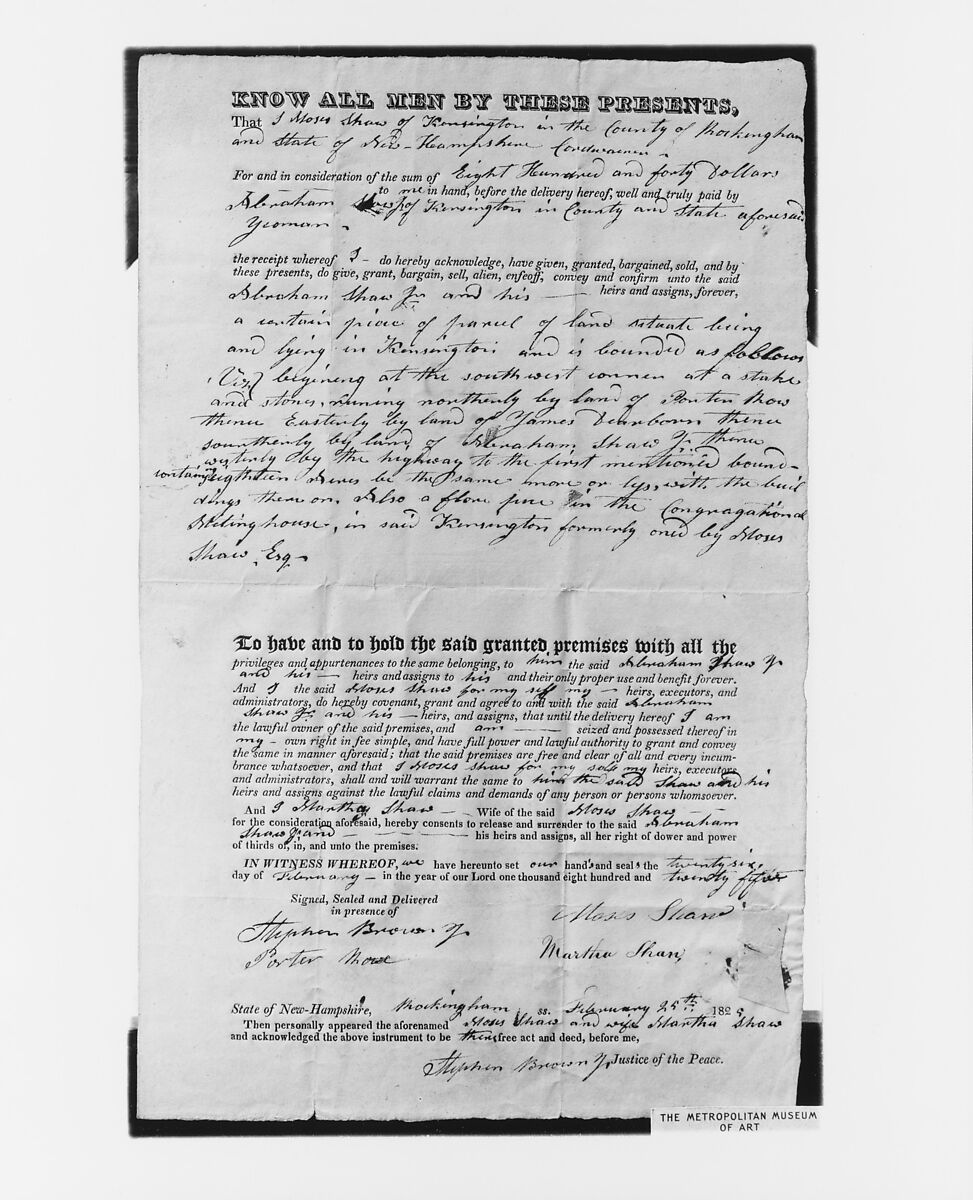 KNOW ALL MEN BY THESE PRESENTS,
That I Moses Shaw of Kensington in the County of Rockingham
and State of New-Hampshire Cordwainer
For and in consideration of the sum of Eight Hundred and forty Dollars
to me in hand, before the delivery hereof, well and truly paid by
Abraham Shaw Jr of Kensington in County and State aforesaid
Yeoman
the receipt whereof I do hereby acknowledge, have given, granted, bargained, sold, and by
these presents, do give, grant, bargain, sell, alien, enfeoff, convey and confirm unto the said
Abraham Shaw Jr and his heirs and assigns, forever,
a certain piece of parcel of land situate being
and lying in Kensington and is bounded as follows
(Viz) begining at the southwest corner at a stake
and stones, runing northerly by land of Porter Rowe
thence Easterly by land of James Dearborn thence
sourtherly by land of Abraham Shaw Jr thence
westerly by the highway to the first mentioned bound-
containing eighteen Acres be the same more or less, with the buil
dings there on Also a flore pue in the Congragational
Meetinghouse, in said Kensington formerly oned by Moses
Shaw Esq
To have and to hold the said granted premises with all the
privileges and appurtenances to the same belonging, to him the said Abraham Shaw Jr
and his heirs and assigns to his and their only proper use and benefit forever.
And I the said Moses Shaw for my self my heirs, executors, and
administrators, do hereby covenant, grant and agree to and with the said Abraham
Shaw Jr and his heirs, and assigns, that until the delivery hereof I am
the lawful owner of the said premises, and am seized and possessed thereof in
my own right in fee simple, and have full power and lawful authority to grant and convey
the same in manner aforesaid; that the said premises are free and clear of all and every incum-
brance whatsoever, and that I Moses Shaw for my self my heirs, executors
and administrators, shall and will warrant the same to him the said Shaw and his
heirs and assigns against the lawful claims and demands of any person or persons whomsoever.
And I Martha Shaw Wife of the said Moses Shaw
for the consideration aforesaid, hereby consents to release and surrender to the said Abraham
Shaw Jr and his heirs and assigns, all her right of dower and power
of thirds of, in, and unto the premises.
IN WITNESS WHEREOF, we have hereunto set our hands and seals the twenty six
day of February in the year of our Lord one thousand eight hundred and twenty
Signed, Sealed and Delivered
in presence of
Moses Shaw
Stephen Brown Jr
Martha Shaw
Porter Rowe
State of New-Hampshire, Rockingham ss. February 182
Then personally appeared the aforenamed Moses Shaw and wife Martha Shaw
and acknowledged the above instrument to be their free act and deed, before me,
Stephen Brown Jr Justice of the Peace.
THE METROPOLITAN MUSEUM
OF ART